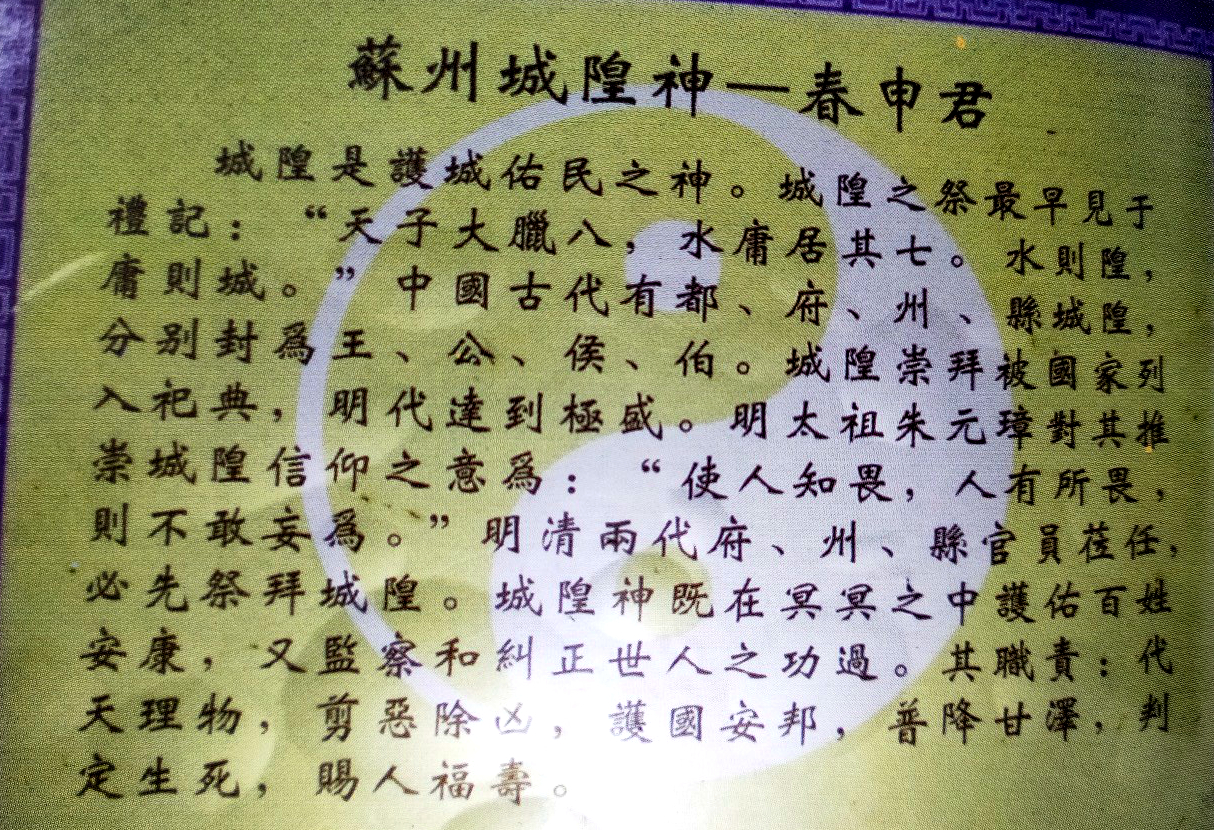 蘇州城隍神—春申君
城隍是護城佑民之神。城隍之祭最早見于
禮記：“天子大臘八，水庸居其七。水則隍，
庸則城。”中國古代有都、府、州、縣城隍，
分别封爲王、公、侯、伯。城隍崇拜被國家列
入祀典，明代達到極盛。明太祖朱元璋對其推
崇城隍信仰之意爲：“使人知畏，人有所畏，
則不敢妄爲。”明清兩代府、州、縣官員莅任，
必先祭拜城隍。城隍神既在冥冥之中護佑百姓
安康，又監察和糾正世人之功過。其職責：代
天理物，剪惡除凶，護國安邦，普降甘澤，判
定生死，賜人福壽。